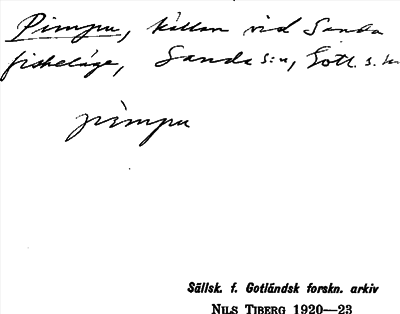 Pimpu, källan vid Sanda
fiskeläge, Sanda s:n, Gotl. s. län
pimpu
Sällsk. f. Gotländsk forskn. arkiv
NILS TIBERG 1920—23